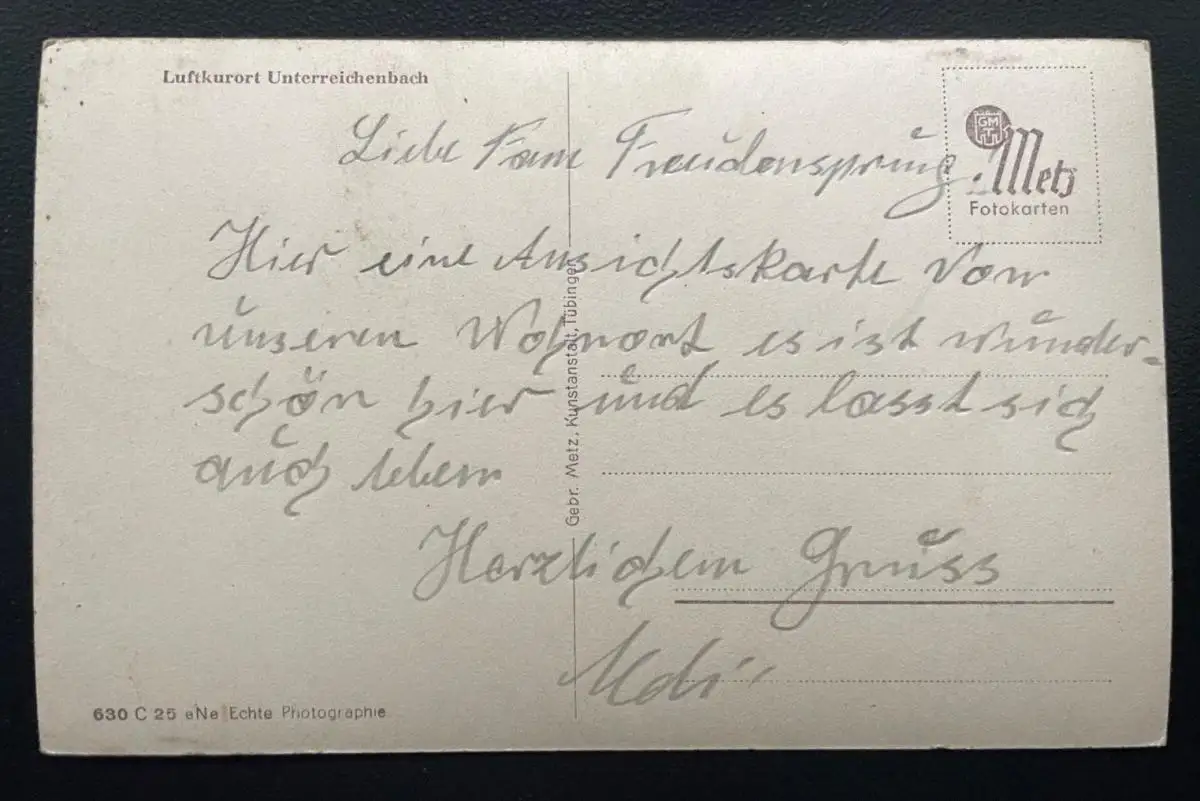 Luftkurort Unterreichenbach
GMT
Metz
Fotokarten
Liebe Fam Freudensprung.
Hier eine Ansichtskarte von
unseren Wohnort es ist wunder-
schön hier und es lasst sich
auch leben
Herzlichem Gruss
Gebr. Metz, Kunstanstalt, Tübingen
630 C 25 eNe Echte Photographie